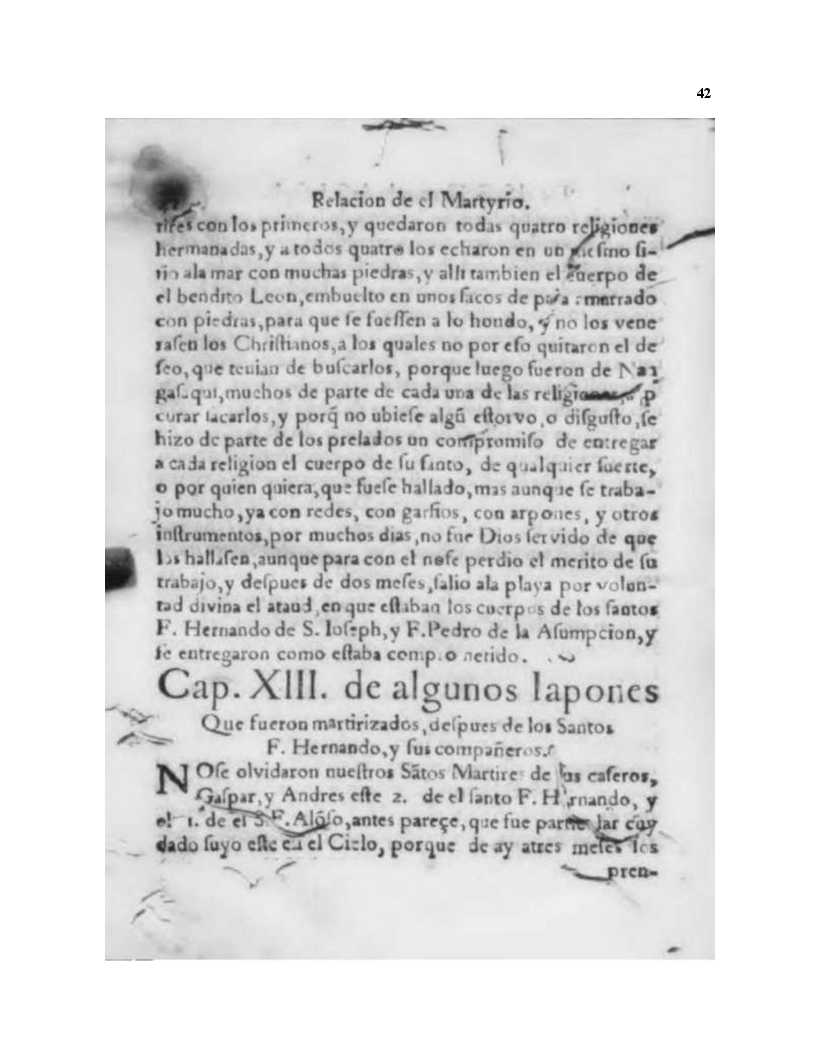 42
Relacion de el Martyrio.
tires con los primeros, y quedaron todas quatro religiones
hermanadas, y a todos quatro los echaron en un mesmo si-
tio ala mar con muchas piedras, y alli tambien el cuerpo de
el bendito Leon, embuelto en unos sacos de paja amarrado
con piedras, para que se fuessen a lo hondo, y no los vene
rasen los Christianos, a los quales no por eso quitaron el de
seo, que tenian de buscarlos, porque luego fueron de Nan
gasaqui, muchos de parte de cada una de las religiones, a p
curar sacarlos, y porq̃ no ubiese algũ estorvo, o disgusto, se
hizo de parte de los prelados un compromiso de entregar
a cada religion el cuerpo de su santo, de qualquier suerte,
o por quien quiera, que fuese hallado, mas aunque se traba-
jo mucho, ya con redes, con garfios, con arpones, y otros
instrumentos, por muchos dias, no fue Dios servido de que
los hallasen, aunque para con el nose perdio el merito de su
trabajo, y despues de dos meses, salio ala playa por volun-
tad divina el ataud, en que estaban los cuerpos de los santos
F. Hernando de S. Ioseph, y F. Pedro de la Asumpcion, y
se entregaron como estaba comp.o netido.
Cap. XIII. de algunos Iapones
Que fueron martirizados, despues de los Santos
F. Hernando, y sus compañeros.
NOse olvidaron nuestros Sãtos Martires de sus caseros,
Gaspar, y Andres este 2. de el santo F. Hernando, y
el 1. de el S. F. Alõso, antes pareçe, que fue particular cuy
dado suyo este en el Cielo, porque de ay atres meses los
pren-